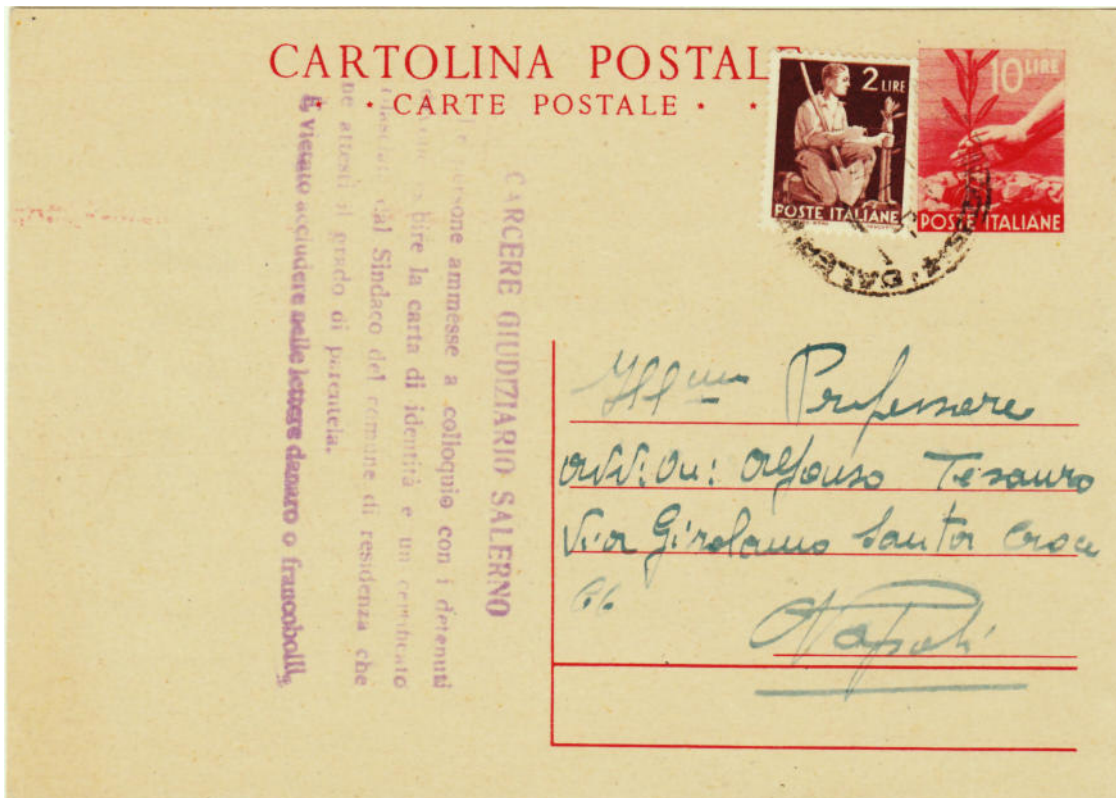 CARTOLINA POSTALE
· CARTE POSTALE · ·
2 LIRE
POSTE ITALIANE
10 LIRE
POSTE ITALIANE
CARCERE GIUDIZIARIO SALERNO
persone ammesse a colloquio con i detenuti
la carta di identità e un certificato
dal Sindaco del comune di residenza che
ne attesti il grado di parentela.
È vietato accludere nelle lettere danaro o francobolli.
Ill mo Professore
avv: on: Alfonso Tesauro
Via Girolamo Santa Croce
Napoli